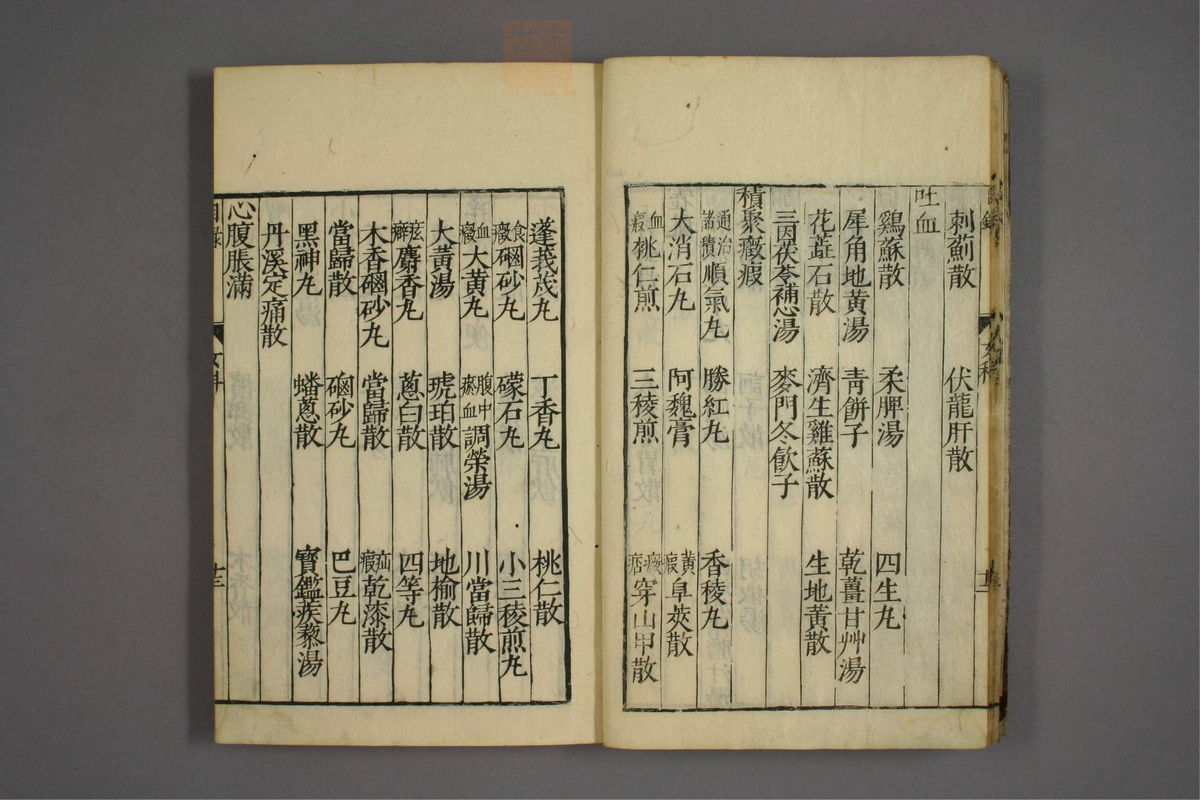 刺薊散 伏龍肝散
吐血
鷄蘇散 柔脾湯 四生丸
犀角地黄湯 青餅子 乾薑甘艸湯
花蕋石散 濟生雞蘇散 生地黄散
三因茯苓補心湯 麥門冬飲子
積聚癥瘕
通治諸積順氣丸 勝紅丸 香稜丸
大消石丸 阿魏膏 黄瘕皁莢散
血瘕桃仁煎 三稜煎 痃癖穿山甲散
蓬莪茂丸 丁香丸 桃仁散
食癥硇砂丸 礞石丸 小三稜煎丸
血癥大黄丸 腹中瘀血調榮湯 川當歸散
大黄湯 琥珀散 地榆散
痃癖麝香丸 蔥白散 四等丸
木香硇砂丸 當歸散 疝瘕乾漆散
當歸散 硇砂丸 巴豆丸
黑神丸 蟠蔥散 寶鑑蒺藜湯
丹溪定痛散
心腹脹滿
目錄 女科 十三